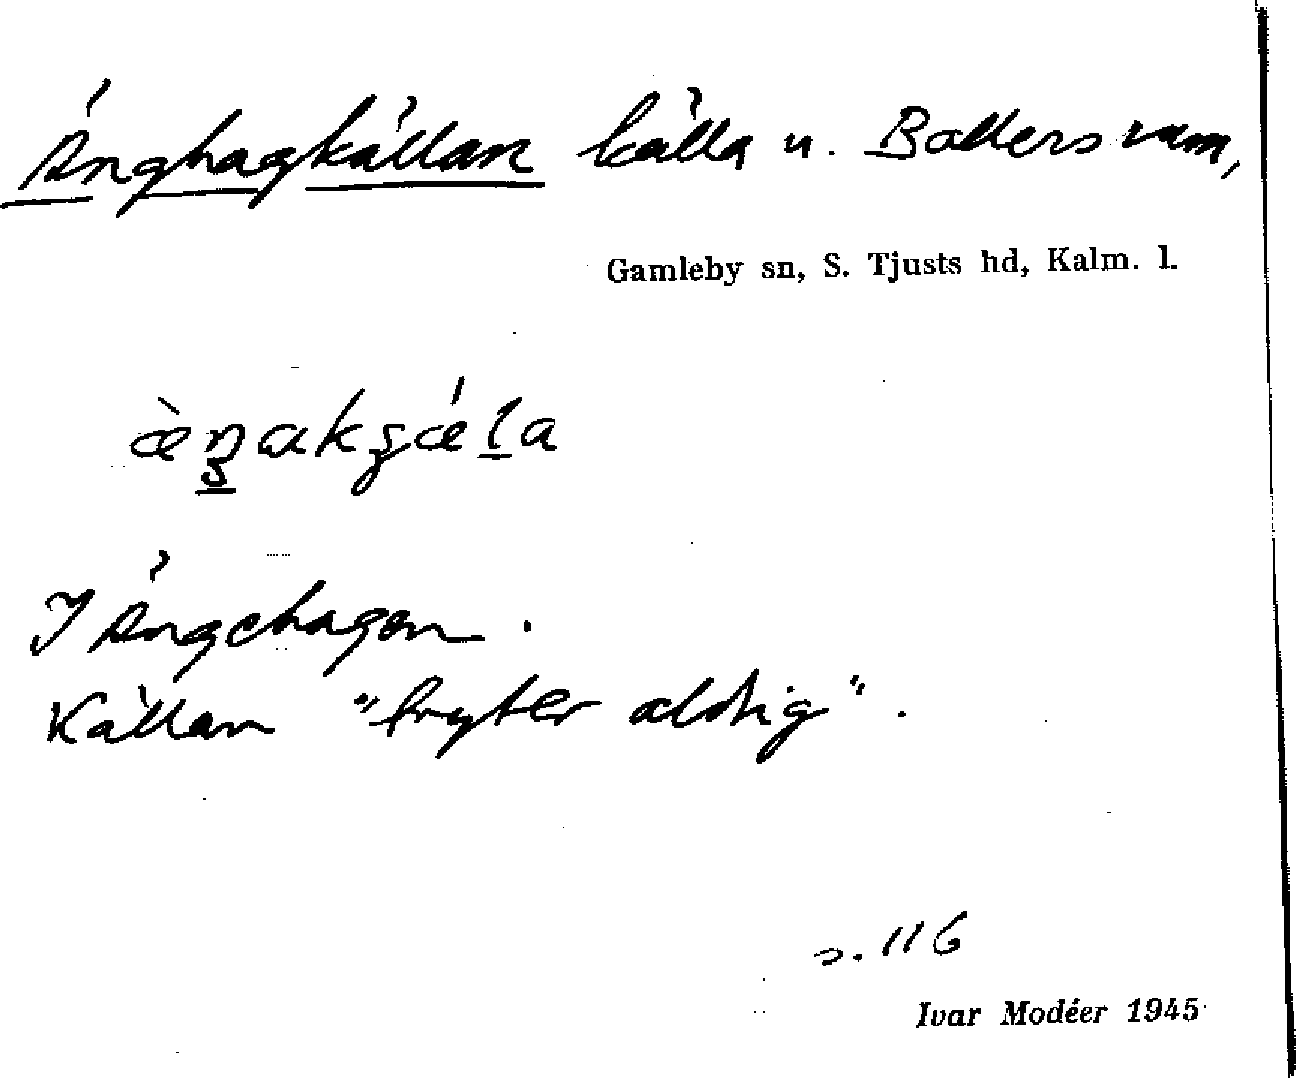 Änghagkällan källa u. Ballersrum,
Gamleby sn, S. Tjusts hd, Kalm. l.
I Ängehagen.
Källan "fryter aldrig".
s. 116
Ivar Modéer 1945